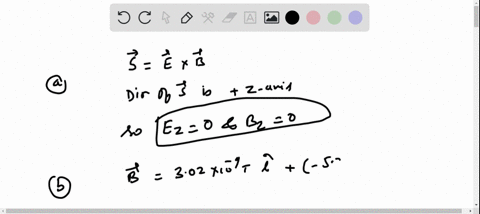 (a) S⃗ = E⃗ × B⃗
Dir of S⃗ is + z-axis
so E_z = 0 & B_z = 0
(b) B⃗ = 3.02 × 10⁻⁹ T î + (-5.